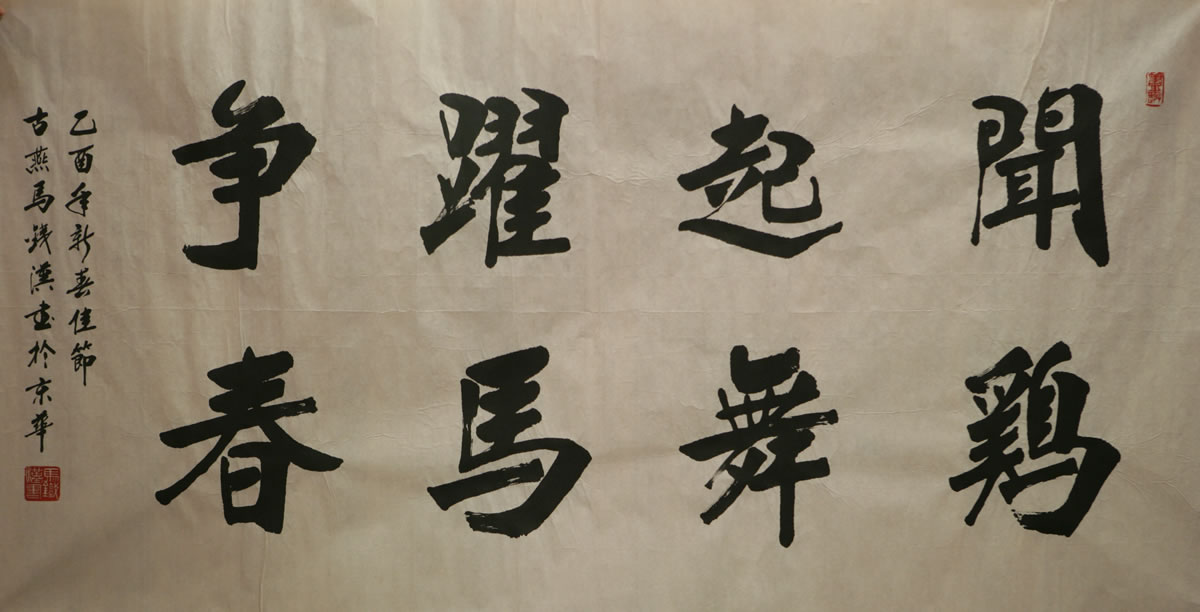 聞鷄
起舞
躍馬
争春
乙酉年新春佳節
古燕馬鐵漢書於京華